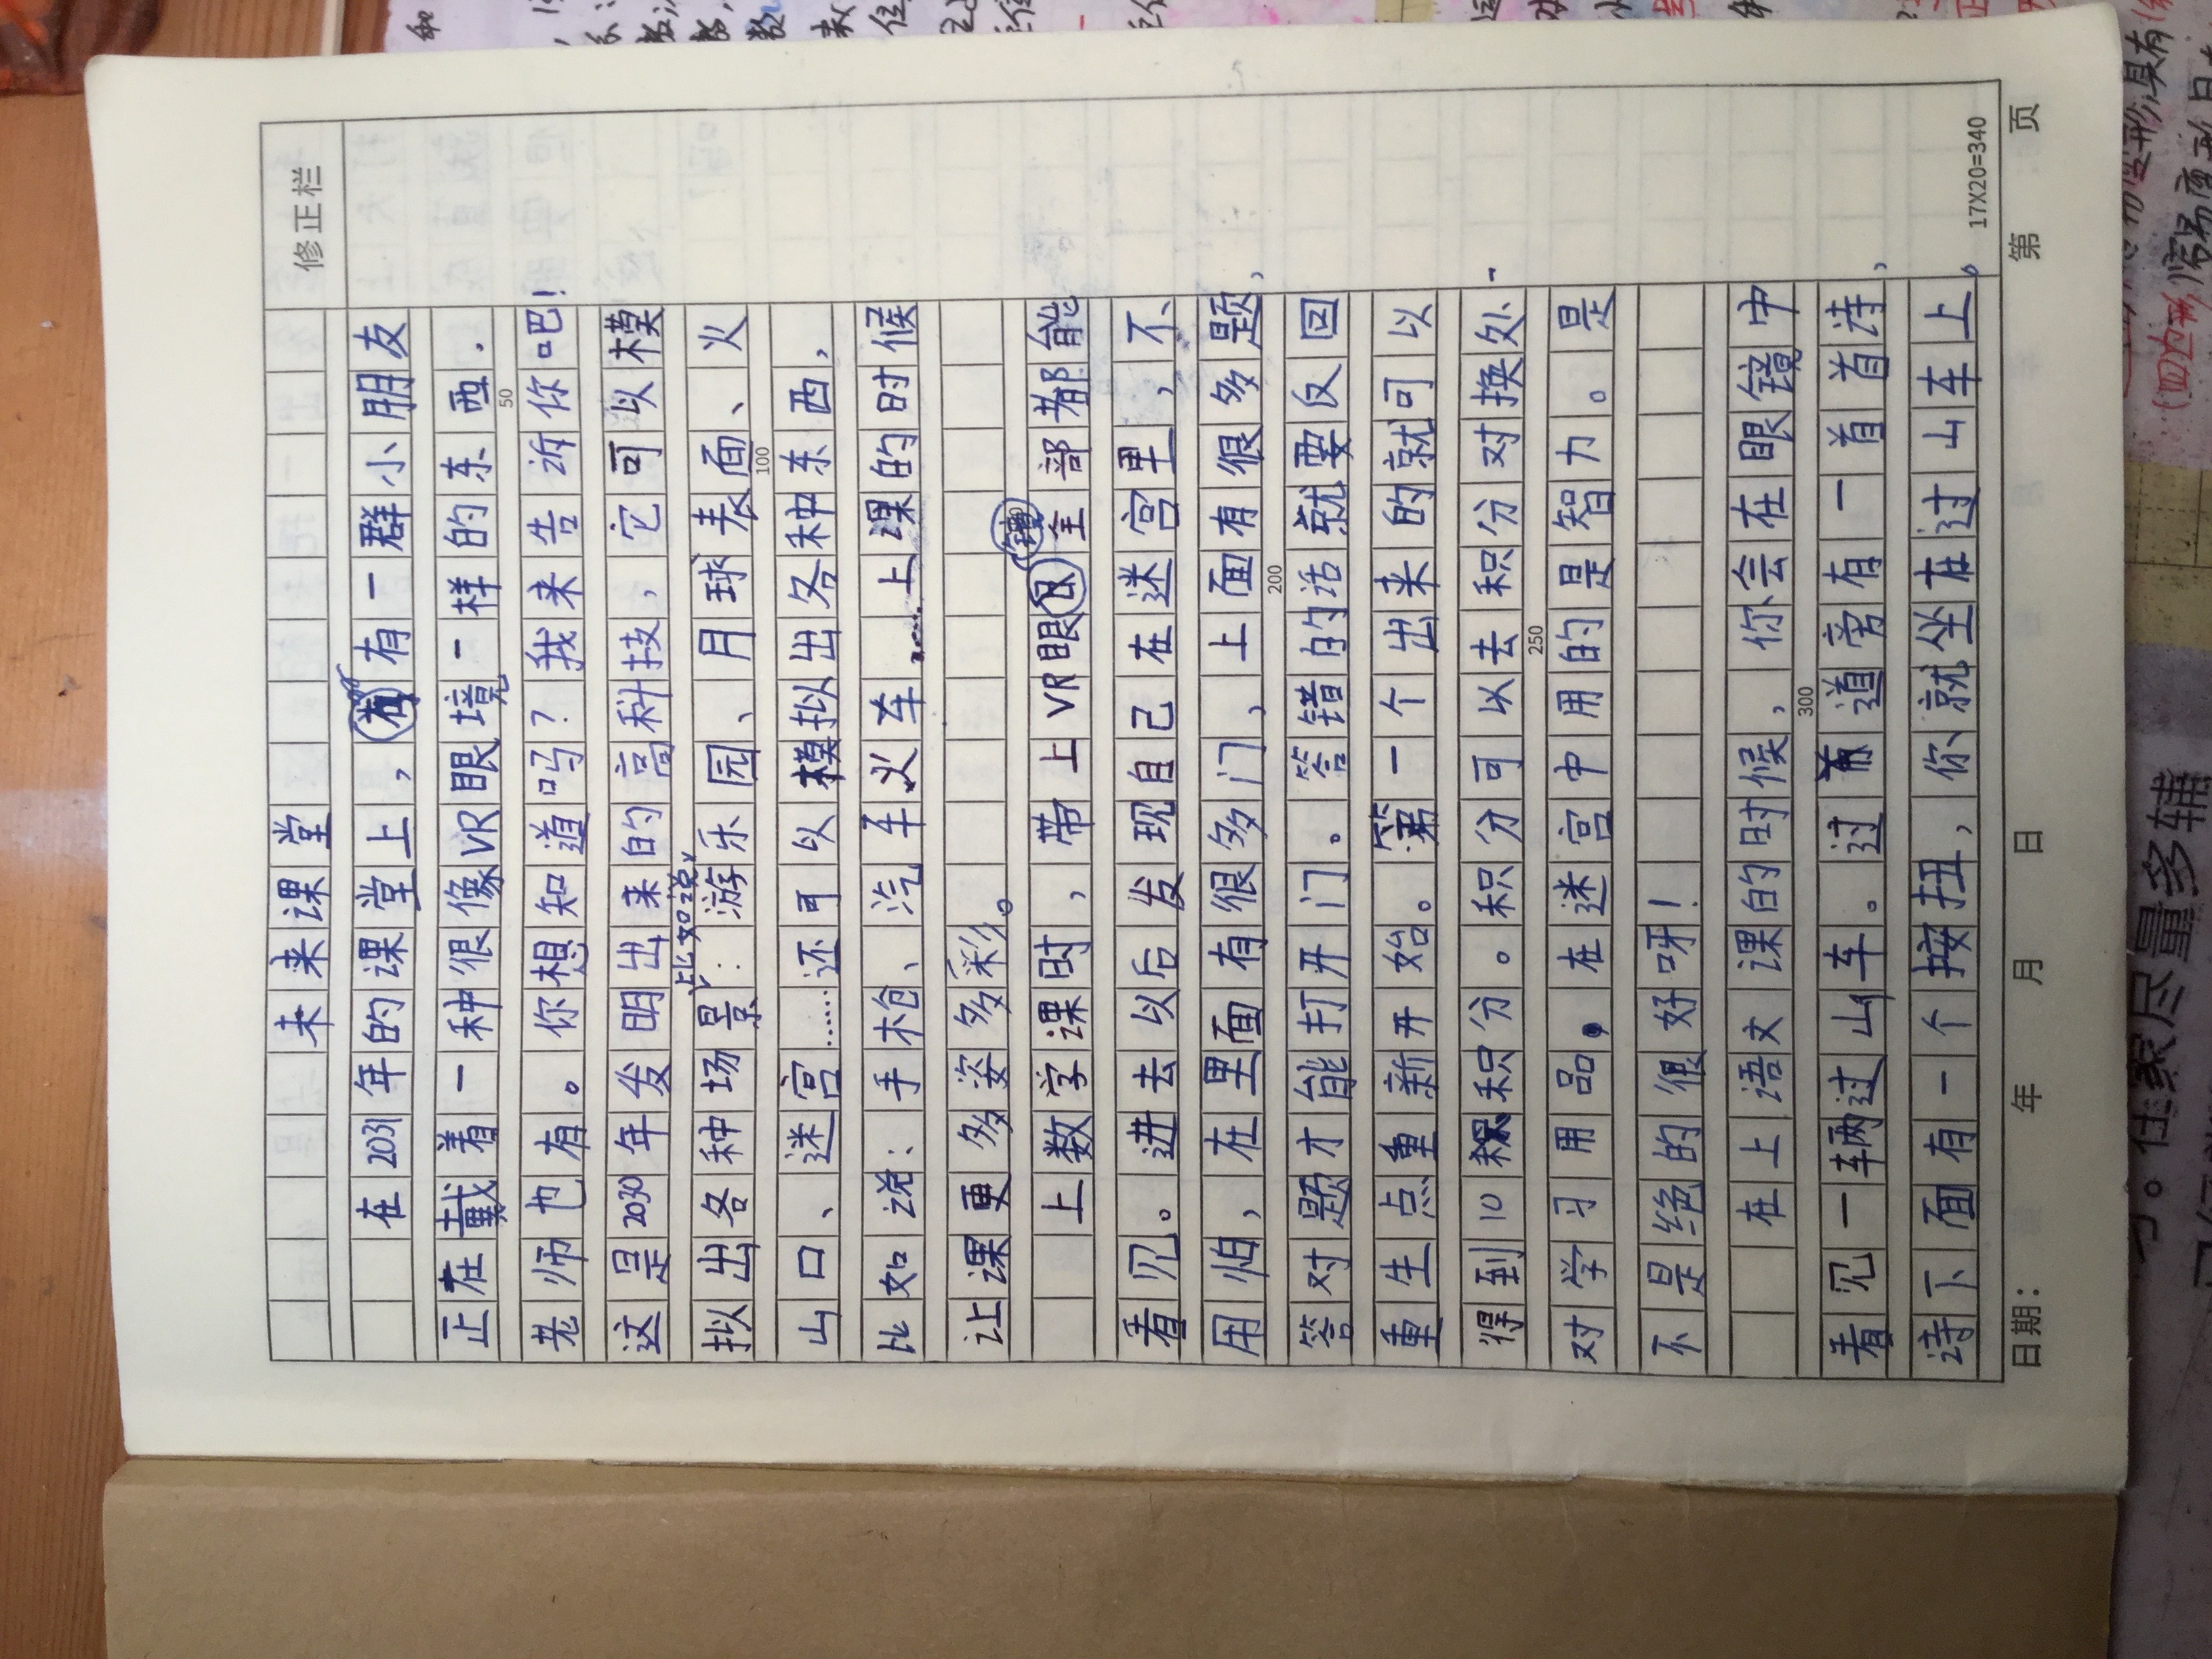 修正栏
未来课堂
在2031年的课堂上，有一群小朋友
正在戴着一种很像VR眼境一样的东西．
老师也有。你想知道吗？我来告诉你吧！
这是2030年发明出来的高科技，它可以模
比如说
拟出各种场景：游乐园、月球表面、火
山口、迷宫……还可以模拟出各种东西，
比如说：手枪、汽车火车……上课的时候
让课更多姿多彩。
镜
上数学课时，带上VR眼全部都能
看见。进去以后发现自己在迷宫里，不
用怕，在里面有很多门，上面有很多题，
答对题才能打开门。答错的话就要反回
重生点重新开始。第一个出来的就可以
得到10积分。积分可以去积分对换处，
对学习用品。在迷宫中用的是智力。是
不是绝的很好呀！
在上语文课的时候，你会在眼镜中
看见一辆过山车。过道旁有一首首诗，
诗下面有一个按扭，你就坐在过山车上，
50
100
200
250
300
17X20=340
日期： 年 月 日 第 页